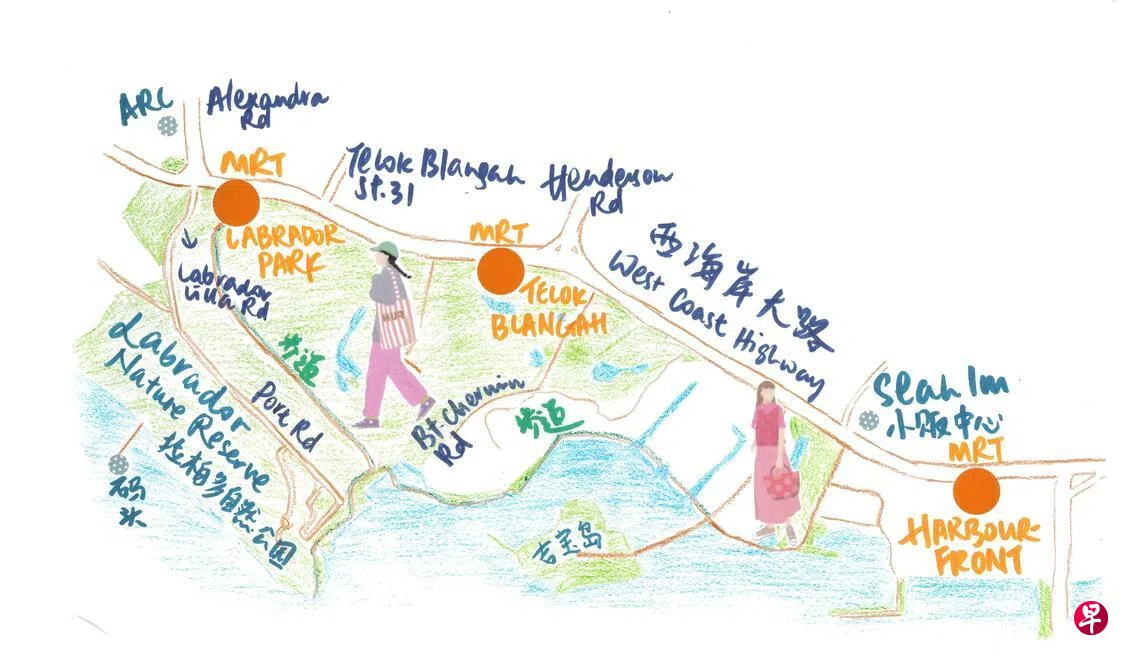 ARC
Alexandra
Rd
MRT
LABRADOR
PARK
Telok Blangah
St.31
Henderson
Rd
MRT
TELOK
BLANGAH
西海岸大路
West Coast Highway
Labrador
Villa Rd
步道
Port Rd
Labrador
Nature Reserve
拉柏多自然公园
码头
FUN
Bt. Chermin
Rd
步道
吉宝岛
Seah Im
小贩中心
MRT
HARBOUR-
FRONT
早